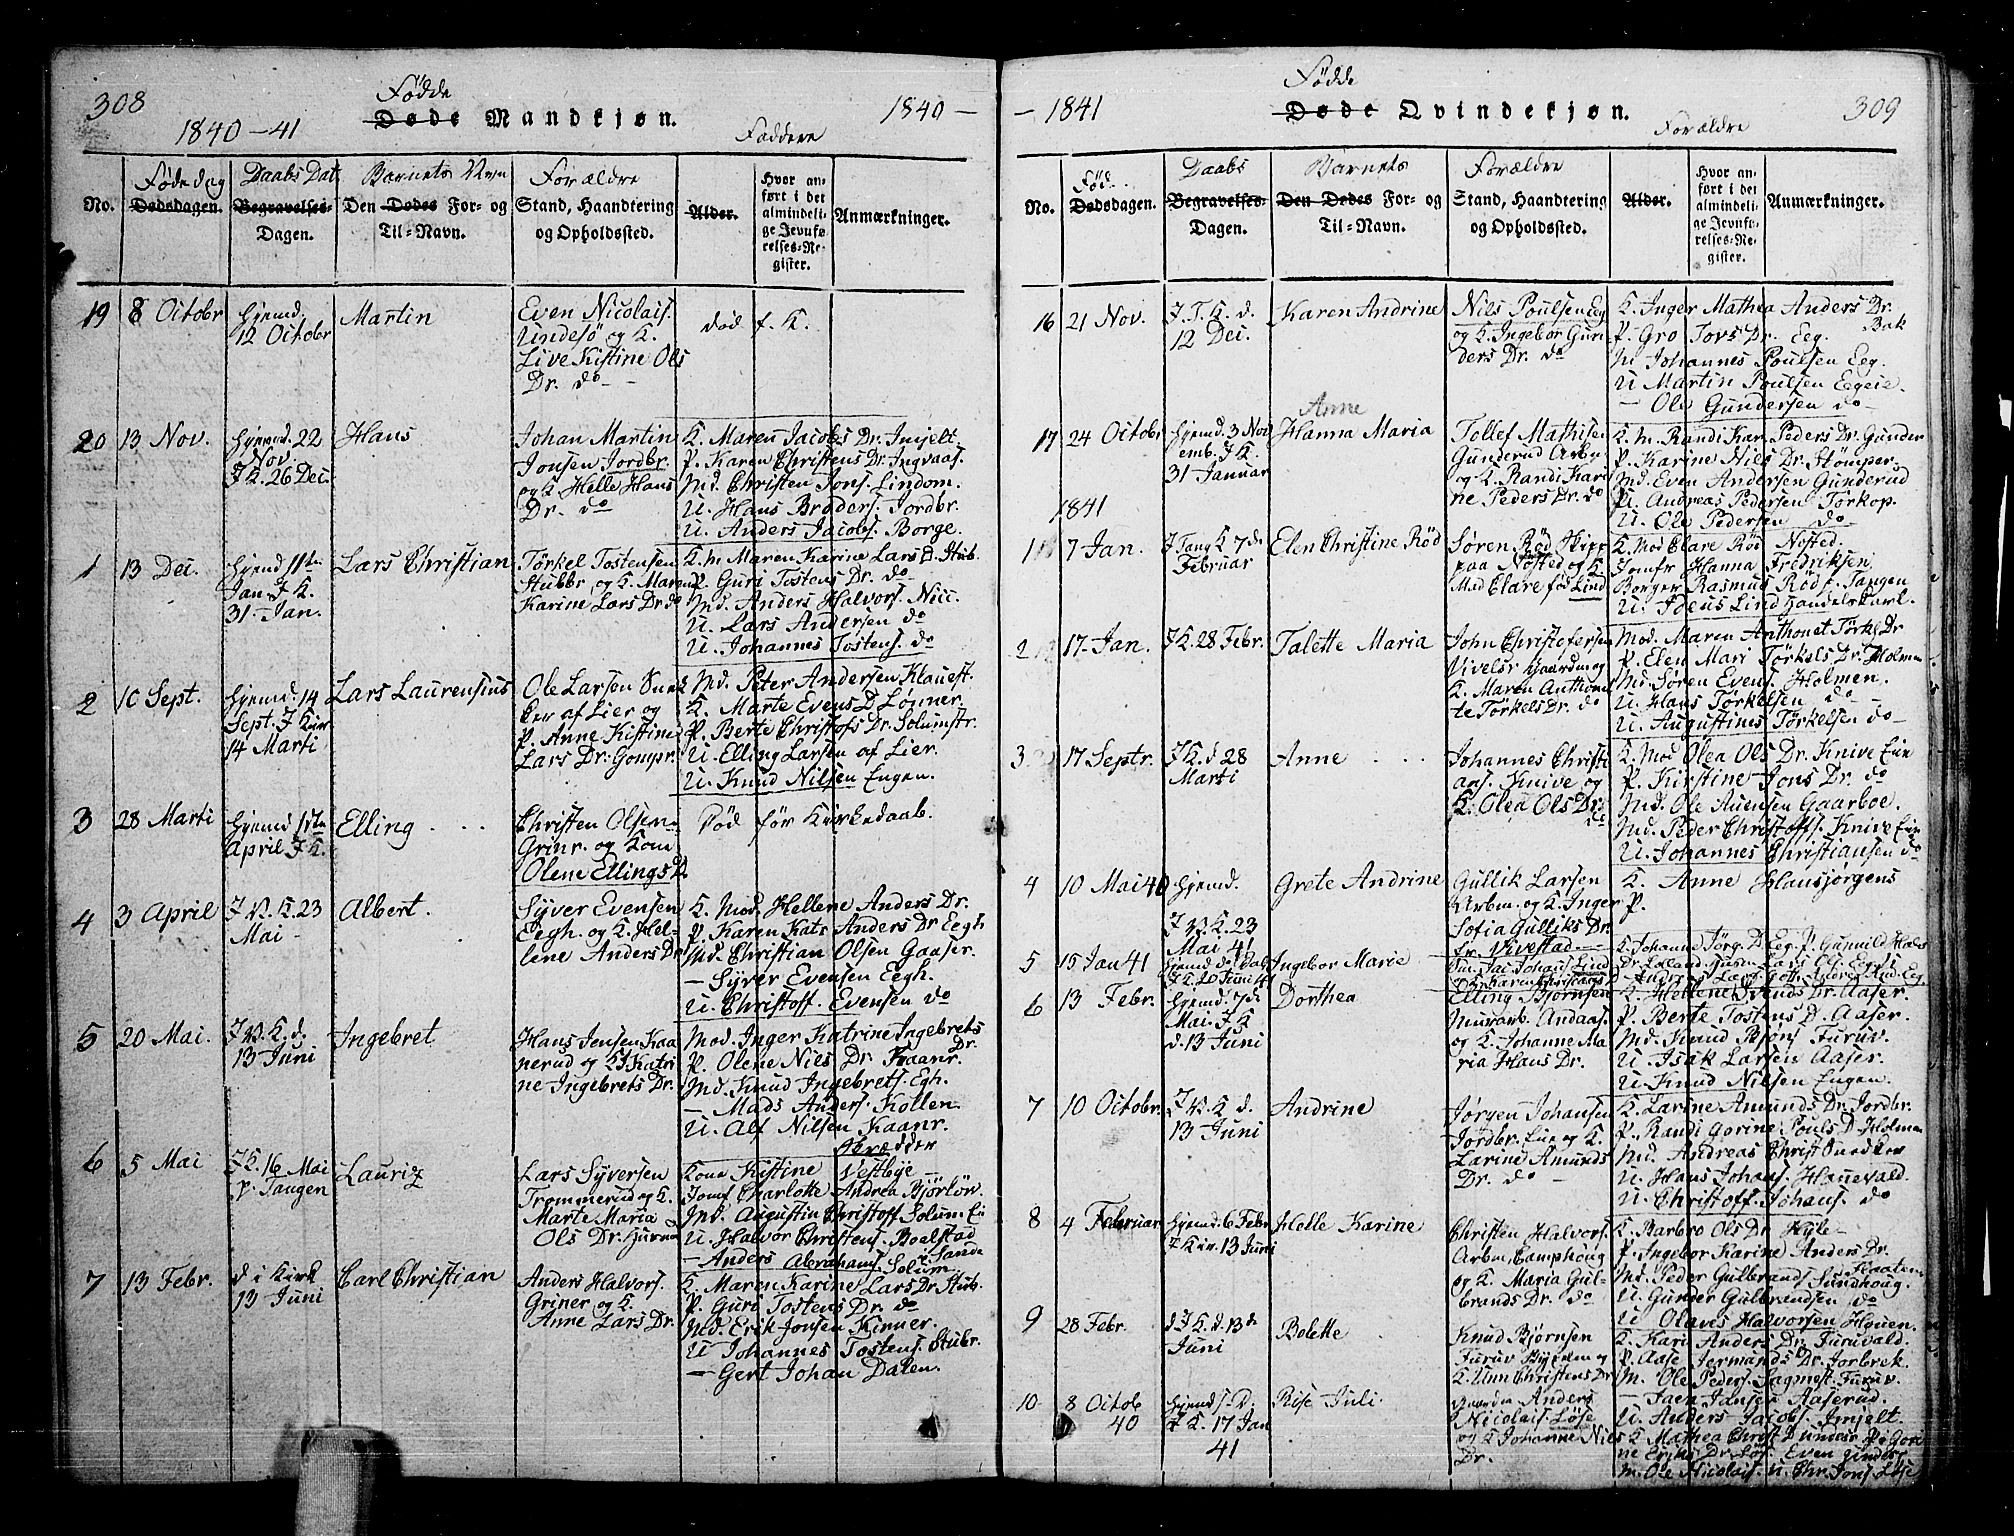 308
Fødde
Døde Mandkjøn.
1840-
1840-41
Faddere
Fødedag
Daabs Dat
Barnets Nvn
Forældre
No.
Dødsdagen.
Begravelses-
Dagen.
Den Dødes For- og
Til-Navn.
Stand, Haandtering
og Opholdssted.
Alder.
Hvor an-
ført i det
almindeli-
ge Jevnfø-
relses-Re-
gister.
Anmærkninger.
19
8 Octobr
Hjemd.
12 Octobr
Martin
Even Nicolais.
Undesø og K.
Live Kistine Ols
Dr. do -
død f. K.
20
13 Nov.
Hjemd. 22
Nov.
I K. 26 Dec.
Hans
Johan Martin
Jonsen Jordbr.
og K. Helle Hans
Dr. do
K. Maren Jacobs Dr. Imjelt.
P. Karen Christens Dr. Ingvaas.
Md. Christen Jons. Lindom.
U. Hans Brøders. Jordbr.
U. Anders Jacobs. Borge.
1
13 Dec.
Hjemd 11te
Jan I K.
31 - Jan.
Lars Christian
Törkel Tostensen
Stubbr og K. Maren
Karine Lars Dr do
K. m. Maren Karine Lars D. Stub.
P. Guri Tostens Dr. do
Md. Anders Halvors. Nicc.
U. Lars Andersen do
U. Johannes Tostens. do
2
10 Sept.
Hjemd. 14
Sept. I Kir
14 Marti
Lars Laurensius
Ole Larsen
af Lier og
P. Anne Kistine
Lars Dr. Gompr.
Md. Peter Andersen Klauest.
K. Marte Evens D. Lønner.
P. Berte Christofs Dr. Solumstr.
U. Elling Larsen af Lier.
U. Knud Nilsen Engen.
3
28 Marti
Hjemd 1ste
April I K.
Elling . . .
Christen Olsen
Grinr. og Kone
Olene Ellings Dr
Død før Kirkedaab.
4
3 April
I V. K. 23
Mai -
Albert.
Syver Evensen
Eegh. og K. Hel-
lene Anders Dr
K. Mod. Hellene Anders Dr.
P. Karen Kats Anders Dr Eegh
Md. Christian Olsen Gaaser.
- Syver Evensen Eegh.
U. Christoff. Evensen do
5
20 Mai.
I V. K. d.
13 Juni
Ingebret
Hans Jensen Kaa
nerud og K Katri
ne Ingebrets Dr.
Mod. Inger Katrine Ingebrets
Dr.
P. Olene Niels Dr Kaanr.
Md. Knud Ingebrets. Egh.
- Mads Anders. Kollen.
U. Alf Nilsen Kaanr.
6
5 Mai
I K. 16 Mai
p. Tangen
Lauriz
Lars Syversen
Trommerud og K.
Marte Maria
Ols Dr. Hurum
Skrædder
Kone Kistine Vestbye -
Jomf Charlotte Andrea Bjørløv.
Md. Augustin Christoff Solum. Ei
U. Halvor Christens. Boelstad
- Anders Abrahams. Solum. i Sande
7
13 Febr.
d i Kirk
13 Juni
Carl Christian
Anders Halvors.
Griner og K.
Anne Lars Dr.
K. Maren Karine Lars Dr Stub.
P. Guri Tostens Dr. do
Md. Erik Jonsen Kinner.
U Johannes Tostens. Stubr.
- Gert Johan Dalen.
- 1841
Fødde
Døde Qvindekjøn.
Forældre
309
Fød..
Daabs
Barnets
Forældre
No.
Dødsdagen.
Begravelses-
Dagen.
Den Dødes For- og
Til-Navn.
Stand, Haandtering
og Opholdssted.
Alder.
Hvor an-
ført i det
almindeli-
ge Jevnfø-
relses-Re-
gister.
Anmærkninger.
16
21 Nov.
I T. K. d.
12 Dec.
Karen Andrine
Nils Poulsen Eeg
og K. Ingebor Gun
ders Dr. do
K. Inger Mathea Anders Dr.
Bak
P. Gro Tors Dr. Eeg.
M. Johannes Poulsen Eeg.
U Martin Poulsen Eegeie.
- Ole Gundersen do-
17
24 Octobr
Hjemd. 3 Nov
emb. I K.
31 Januar
Anne
Hanna Maria
Tollef Mathisen
Gunderud Arbm
og K. Randi Kari
ne Peders Dr. do
K. m. Randi Kar. Peders Dr. Gunder
P. Karine Nils Dr. Stömper.
Md. Even Andersen Gunderud
U. Andreas Pedersen Törkop.
U. Ole Pedersen do-
1841
1
7 Jan.
I Tang K. 7de
Februar
Elen Christine Rød
Søren Rød Skipp
paa Nøsted og K
Mad Clare fød Lind
K. Mod Clare Rød Nøsted.
Jomfr Hanna Fredriksen
Borger Rasmus Röd f. Tangen
U. Joens Lind Handelskarl.
2
17 Jan.
I K. 28 Febr.
Talette Maria
John Christofersen
Vivelsr
K. Maren Anthone
te Törkels Dr. do
Mod. Maren Anthonet Törkl. Dr
P. Elen Mari Törkels Dr. Holmen
Md. Sören Evens. Holmen.
U. Hans Törkelsen do-
U. Augustinus Törkelsen do-
3
17 Septr.
I K. d 28
Marti
Anne . . .
Johannes Christi
ans. Knive og
K. Olea Ols Dr.
do
K. Mod Olea Ols Dr. Knive Eie
P. Kirstine Jons Dr. do
Md. Ole Auensen Gaarboe.
Md. Peder Christoffs. Knive Eie
U. Johannes Christiansen do
4
10 Mai 40
Hjemd.
I V. K. 23
Mai 41
Grete Andrine
Gullik Larsen
Arbm. og K. Inger
Sofia Gulliks Dr.
Vivestad -
K. Anne Hansjørgens
P.
5
15 Jan 41
I K. 20 Juni 41
Ingebor Marie
K. Johanne Jörg. D. Eeg. P. Gunvild
6
13 Febr.
Hjemd. 7de
Mai. I K
d. 13 Juni
Dorthea
Elling Bjørnsen
Murarb. Andaas.
og K. Johanne Ma
ria Hans Dr.
K. Hellene Svends Dr. Aaser.
P. Berte Tostens D. Aaser.
Md. Knud Björs Furuv.
U. Isak Larsen Aaser.
U. Knud Nilsen Engen.
7
10 Octobr.
I V. K d.
13 Juni
Andrine
Jørgen Johansen
Jordbr. Eie og K.
Larine Amunds
Dr. do -
K. Larine Amunds Dr. Jordbr.
P. Randi Gorine Pouls D. Holmen
Md. Andreas Christ
U. Hans Johans. Hanevald.
U. Christoff. Johans. do
8
4 Februar
Hjemd. 6 Febr
I Kir. 13 Juni
Helle Karine
Christen Halvors.
Arbm. Camphoug
og K. Maria Gul-
brands Dr. do
K. Barbro Ols Dr Hyle-
P. Ingebor Karine Anders Dr.
Md. Peder Gulbrands Sundhoug.
U. Gunder Gulbrandsen do
U Olavis Halvorsen Houen.
9
28 Febr.
d I K. d. 13de
Juni
Bolette
Knud Bjørnsen
Furuv
K. Ann Christens Dr
K. Kari Anders Dr. Furuvald.
P. Aase Jermands Dr. Jorbrek.
M. Ole Peders. Sagmest. Furuv.
- Jaen Jansen Aaserud.
U. Anders Jacobs. Imjelt.
10
8 Octob
40
Hjemd s. D.
I K. 17 Jan
41
Rise Juli.
Anders
Nicolais. Løse
og K Johanne Niels
Dr.
K Mathea Christ
ne Eriks Dr Løs. Even Gunders.
M. Ole Nicolais. U. Chr. Jons. Løse